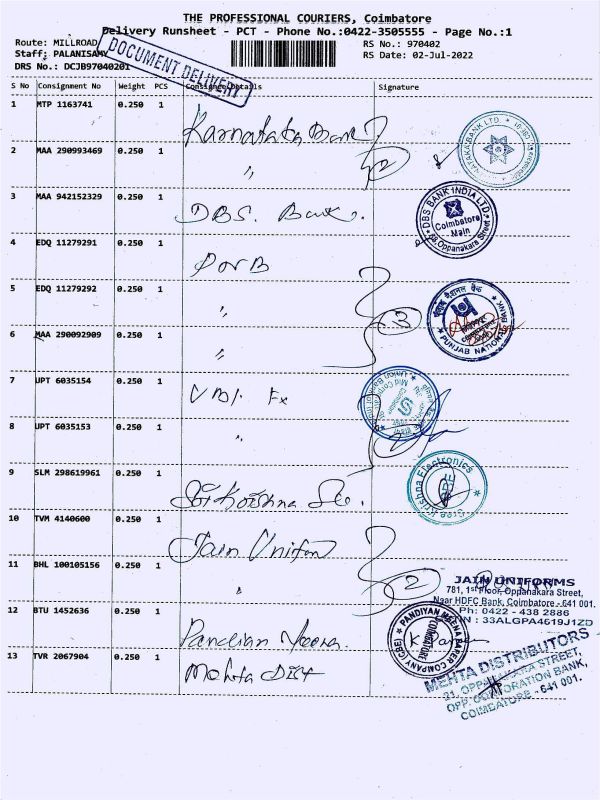 THE PROFESSIONAL COURIERS, Coimbatore
Delivery Runsheet - PCT - Phone No.:0422-3505555 - Page No.:1
Route: MILLROAD
RS No.: 970402
Staff: PALANISAMY
RS Date: 02-Jul-2022
DRS No.: DCJB97040201
DOCUMENT DELIVERY
S No Consignment No Weight PCS Consignee Details Signature
1 MTP 1163741 0.250 1 Karnataka Bank
2 MAA 290993469 0.250 1 " 2
3 MAA 942152329 0.250 1 DBS. Bank.
DBS BANK INDIA LTD
Coimbatore
Main
Oppanakara Street
4 EDQ 11279291 0.250 1 PNB
5 EDQ 11279292 0.250 1 " 3
पंजाब नैशनल बैंक
PUNJAB NATIONAL BANK
6 MAA 290092909 0.250 1 "
7 UPT 6035154 0.250 1
8 UPT 6035153 0.250 1 "
9 SLM 298619961 0.250 1 Sri Krishna Ele.
Sree Krishna Electronics
10 TVM 4140600 0.250 1 Jain Uniform
11 BHL 100105156 0.250 1 " 2
JAIN UNIFORMS
781, 1st Floor, Oppanakara Street,
Near HDFC Bank, Coimbatore - 641 001.
Ph: 0422 - 438 2886
33ALGPA4619J1ZD
12 BTU 1452636 0.250 1 Pandian Meena.
PANDIYAN MEENA PAPER COMPANY (CBE)
COIMBATORE
13 TVR 2067904 0.250 1 Mehta Dist
MEHTA DISTRIBUTORS
31, OPPANAKARA STREET,
OPP. CORPORATION BANK,
COIMBATORE - 641 001.